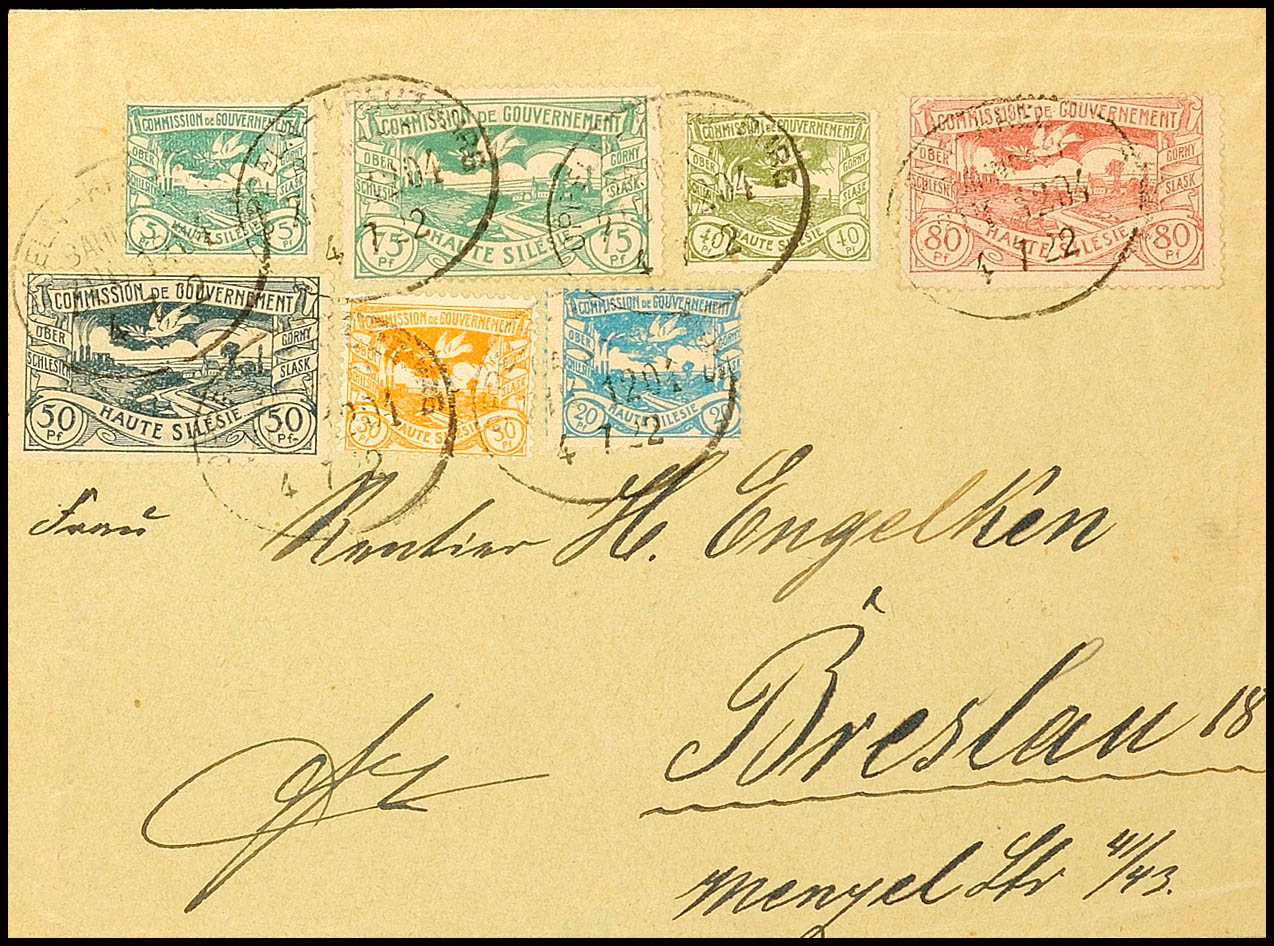 COMMISSION DE GOUVERNEMENT
OBER SCHLESIEN
GORNY SLASK
5 Pf HAUTE SILÉSIE 5 Pf
COMMISSION DE GOUVERNEMENT
OBER SCHLESIEN
GORNY SLASK
75 Pf HAUTE SILÉSIE 75 Pf
4 1 22
COMMISSION DE GOUVERNEMENT
OBER SCHLESIEN
GORNY SLASK
40 Pf HAUTE SILÉSIE 40 Pf
4 1 22
COMMISSION DE GOUVERNEMENT
OBER SCHLESIEN
GORNY SLASK
80 Pf HAUTE SILÉSIE 80 Pf
1204
4 1 22
COMMISSION DE GOUVERNEMENT
OBER SCHLESIEN
GORNY SLASK
50 Pf HAUTE SILÉSIE 50 Pf
COMMISSION DE GOUVERNEMENT
30 Pf HAUTE SILÉSIE 30 Pf
4 1 22
COMMISSION DE GOUVERNEMENT
OBER SCHLESIEN
GORNY SLASK
20 Pf HAUTE SILÉSIE 20 Pf
1204
4 1 22
Frau Rentier H. Engelken
Breslau 18
Menzel Str 41/43.